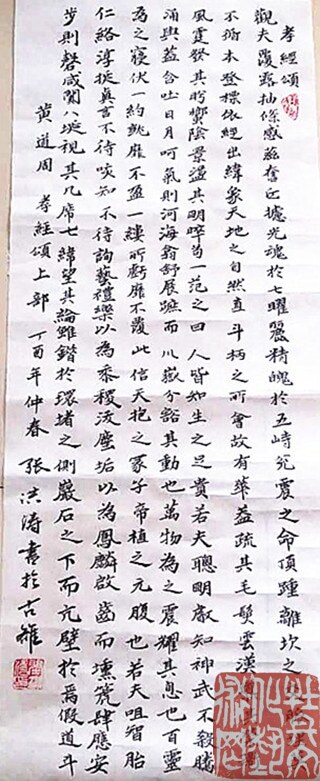 孝經頌
觀夫覆露抽條感蕊奮匹攄光魂於七曜麗精魄於五峙冗震之命頂踵離坎之
不循本登標依經出緯象天地之自然直斗柄之所會故有華蓋疏其毛髮雲漢
風霆發其肸蠁陰景還其明晬苟一范之曰人皆知生之足貴若夫聰明叡知神武不殺勝
涌與蓋合吐日月呵氣則河海翕舒展蹠而川嶽分谿其動也萬物為之震耀其息也百靈
為之寢伏一約觥靡不盈一縷所虧靡不覆此信天抱之冢子帝植之元腹也若夫咀智胎
仁絡淳挻真言不待啖知不待詢藝禮樂以為黍稷泼塵垢以為鳳麟啟齒而壎箎肆應安
步則磬咸闃八埏視其几席七緯望其論雖錯於環堵之側巖石之下而亢壁於焉假道斗
黃道周 孝經頌上部 丁酉年仲春 張洪濤書於古雒